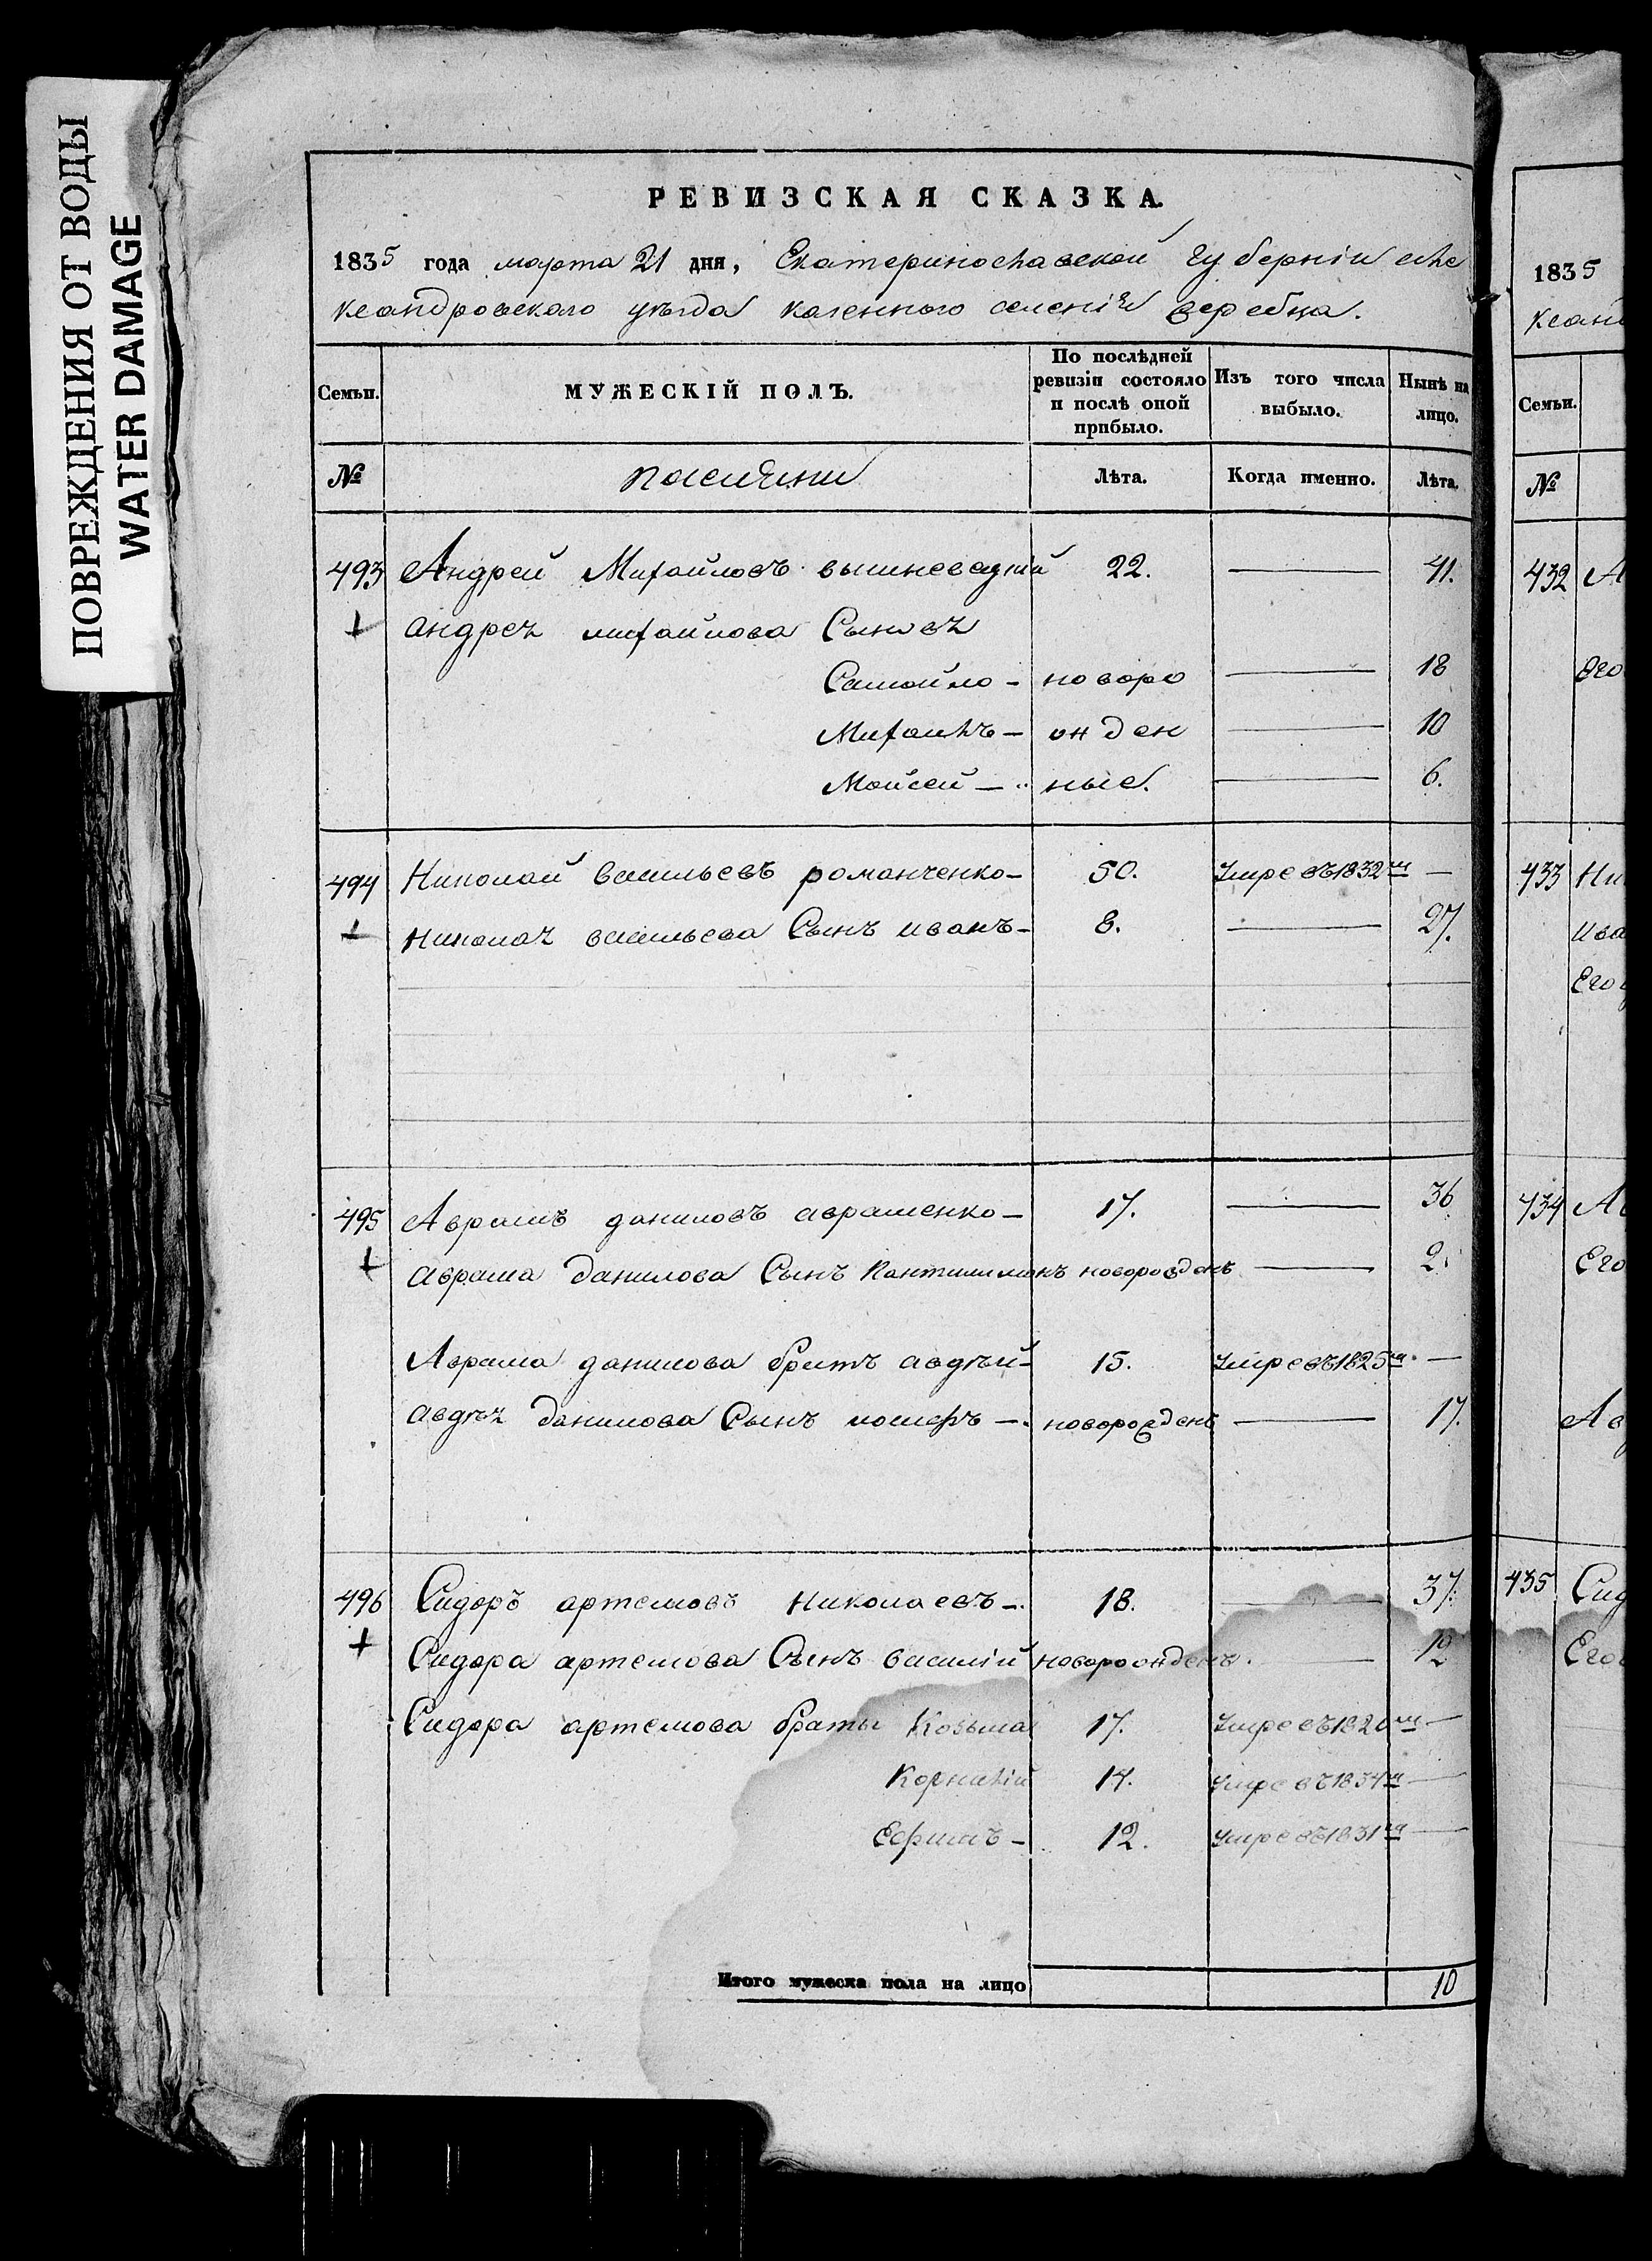 ПОВРЕЖДЕНИЯ ОТ ВОДЫ
WATER DAMAGE
РЕВИЗСКАЯ СКАЗКА.
1835 года марта 21 дня, Екатеринославской губерніи але
ксандровского уѣзда казенного селенія жеребца.
Семьи. МУЖЕСКІЙ ПОЛЪ. По послѣдней ревизіи состояло и послѣ оной прибыло. Изъ того числа выбыло. Нынѣ на лицо.
№ Лѣта. Когда именно. Лѣта.
493 Андрей Михайловъ вишневецкій 22. — 41.
андрея михайлова Сыновя
Самойло - новоро — 18
Михаилъ - жден — 10
Мойсей - ные. — 6.
494 Николай васильевъ романченко - 50. Умре въ 1832м —
николая васильева Сынъ иванъ - 8. — 27.
495 Аврамъ даниловъ авраменко - 17. — 36
аврама данилова Сынъ Пантилимонъ новорожденъ — 2.
Аврама данилова братъ авдѣй - 15. Умре въ 1825м. —
авдѣя данилова Сынъ иосифъ - новорожденъ — 17.
496 Сидоръ артемовъ николаевъ - 18. — 37.
Сидора артемова Сынъ василій новорожденъ. — 12
Сидора артемова браты Козьма 17. Умре въ 1820м —
Корнилій 14. Умре въ 1834м —
Ефимъ - 12. Умре въ 1831м —
Итого мужеска пола на лицо 10
1835
ксанд
Семьи.
№
432 А
его
433 Ни
ива
Его
434 Ав
Его
Ав
435 Сид
Его